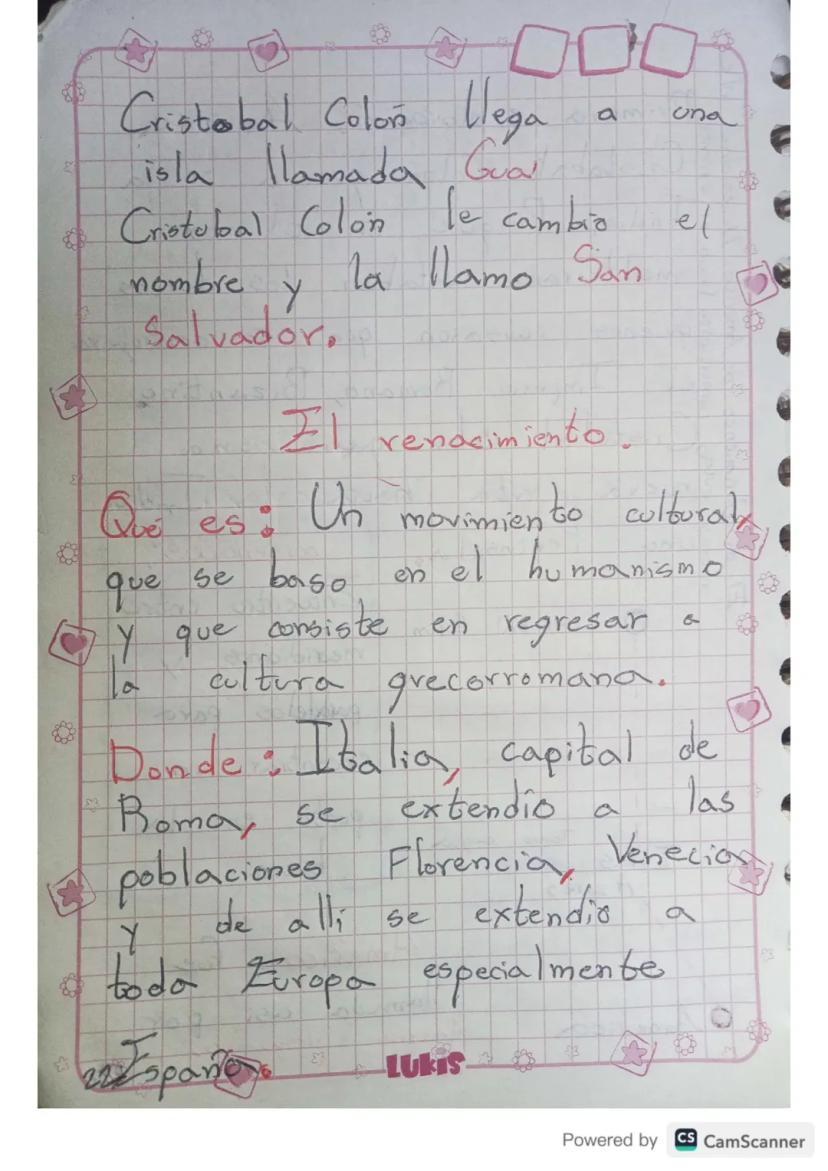 Cristobal Colón llega a una
isla llamada Gua
Cristobal Colón le cambio el
nombre y la llamo San
Salvador.
El renacimiento.
Qué es: Un movimiento cultural
que se baso en el humanismo
y que consiste en regresar a
la cultura grecorromana.
Donde: Italia, capital de
Roma, se extendio a las
poblaciones Florencia, Venecia
y de alli se extendio a
toda Europa especialmente
22 España.
LUKIS
Powered by CS CamScanner